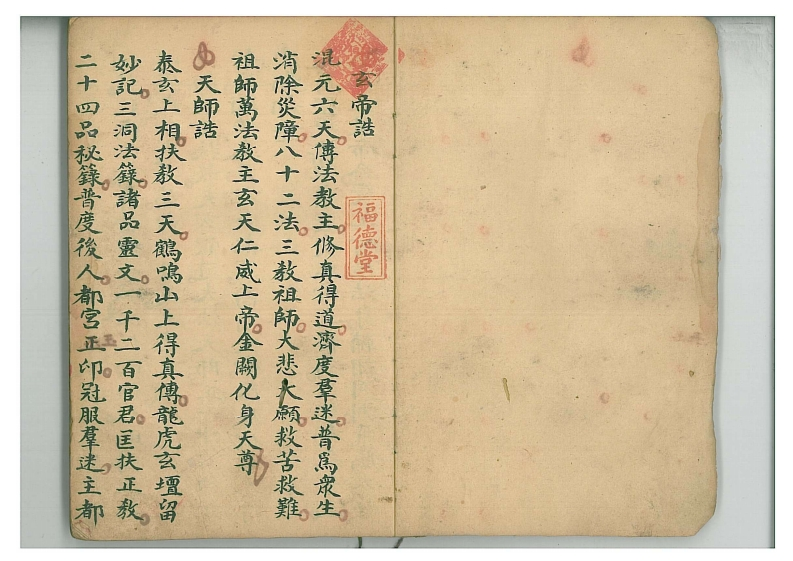 玄帝誥
混元六天傳法教主修真得道濟度羣迷普爲衆生
消除災障八十二法三教祖師大悲大願救苦救難
祖師萬法教主玄天仁威上帝金闕化身天尊
天師誥
泰玄上相扶教三天鶴鳴山上得真傳龍虎玄壇留
妙記三洞法籙諸品靈文一千二百官君匡扶正教
二十四品秘籙普度後人都宮正印冠服羣迷主都
玉
福德堂